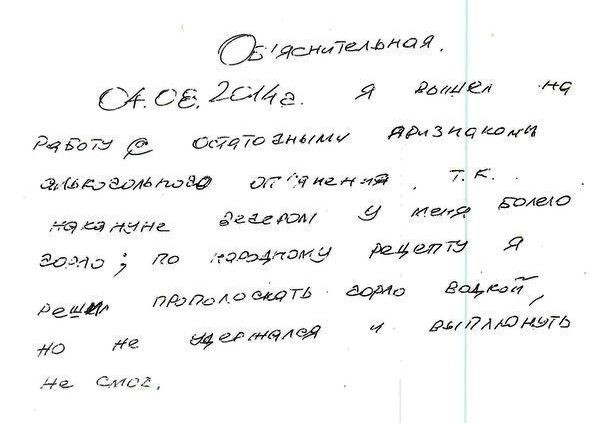 Об'яснительная.
04.08.2014г. я вышел на
работу с остаточными признаками
алкогольного оп'янения, т.к.
накануне вечером у меня болело
горло; по народному рецепту я
решил прополоскать горло водкой,
но не удержался и выплюнуть
не смог.